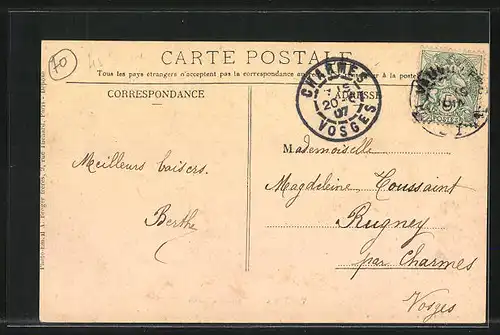 70
CARTE POSTALE
Tous les pays étrangers n'acceptent pas la correspondance au à la poste
CORRESPONDANCE
ADRESSE
CHARMES
20
07
VOSGES
Meilleurs baisers.
Berthe
Mademoiselle
Magdeleine Toussaint
Rugney
par Charmes
Vosges